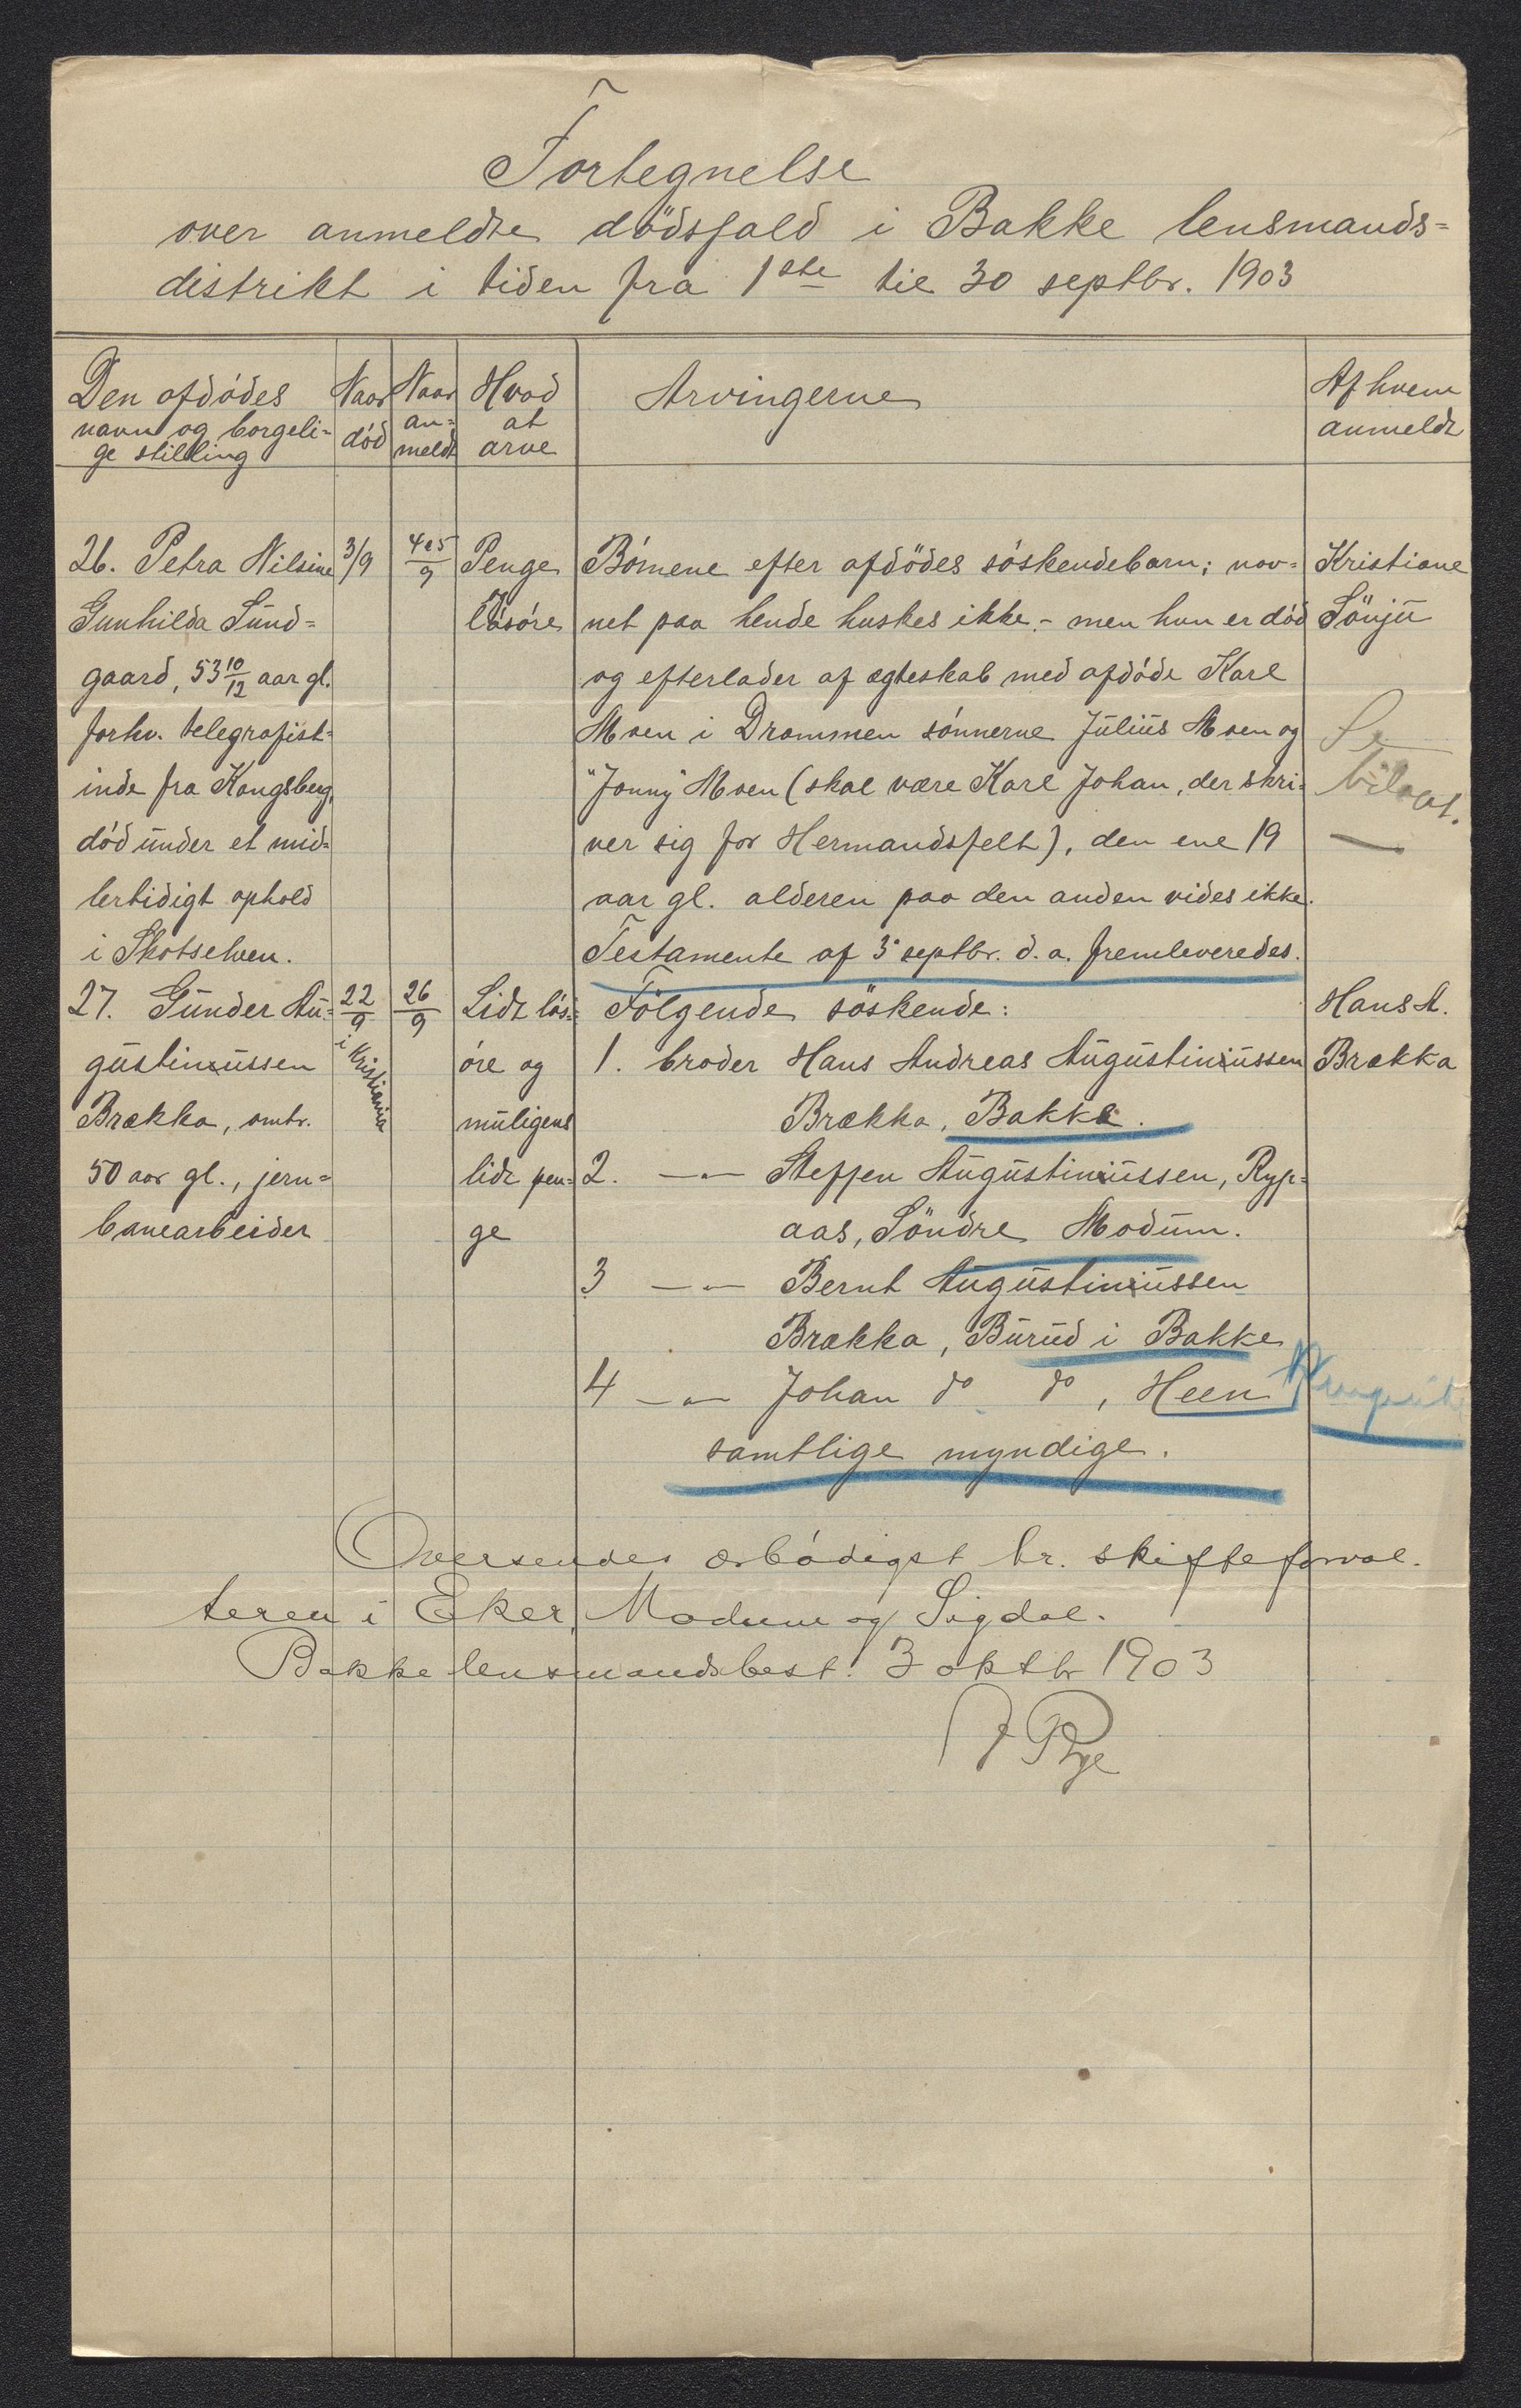 Fortegnelse
over anmeldte dödsfald i Bakke lensmands=
distrikt i tiden fra 1ste til 30 septbr. 1903
Den afdödes
navn og borgeli-
ge stilling
Naar
död
Naar
an-
meldt
Hvad
at
arve
Arvingerne
Af hvem
anmeldt
26. Petra Nilsine
Gunhilda Sund=
gaard, 53 10/12 aar gl.
forhv. telegrafist=
inde fra Kongsberg,
död under et mid=
lertidigt ophold
i Skotselven.
3/9
4 & 5/9
Penge
Lösöre
Börnene efter afdödes söskendebarn; nav=
net paa hende huskes ikke - men hun er död
og efterlader af ægteskab med afdöde Karl
Moen i Drammen sönnerne Julius Moen og
"Jonny" Moen (skal være Karl Johan, der skri=
ver sig for Hermandsfelt), den ene 19
aar gl. alderen paa den anden vides ikke.
Testamente af 3 septbr. d. a. fremleveredes.
Kristiane
Sönju
Se
bilaat.
27. Gunder Au=
gustinussen
Brækka, omtr.
50 aar gl., jern=
banearbeider
22/9
i Kristiania
26/9
Lidt lös=
öre og
muligens
lidt pen=
ge
Fölgende söskende:
1. broder Hans Andreas Augustinussen
Brækka, Bakke.
2. —"— Steffen Augustinussen, Ryp=
aas, Söndre Modum.
3 —"— Bernt Augustinussen
Brækka, Burud i Bakke
4 —"— Johan do do, Heen
samtlige myndige.
Hans A.
Brækka
Oversendes ærbödigst hr. skifteforval-
teren i Eker, Modum og Sigdal.
Bakke lensmandsbest. 3 oktbr 1903
J Rye